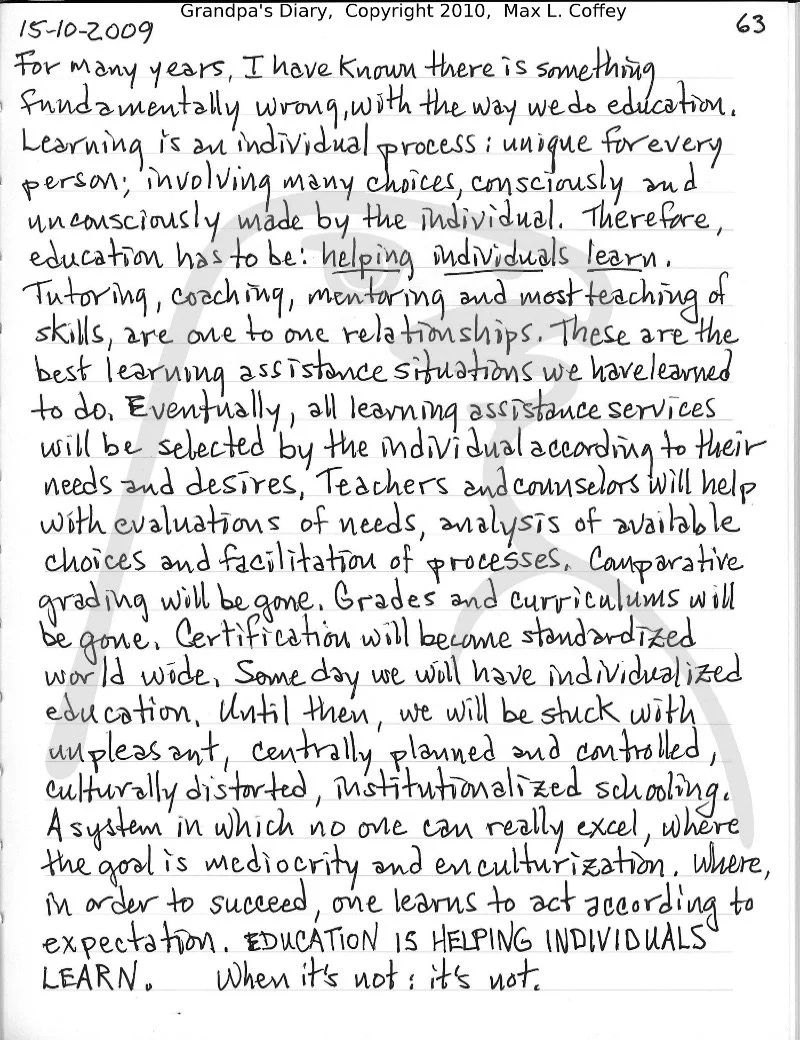 Grandpa's Diary, Copyright 2010, Max L. Coffey
15-10-2009
63
For many years, I have known there is something
fundamentally wrong, with the way we do education.
Learning is an individual process: unique for every
person; involving many choices, consciously and
unconsciously made by the individual. Therefore,
education has to be: helping individuals learn.
Tutoring, coaching, mentoring and most teaching of
skills, are one to one relationships. These are the
best learning assistance situations we have learned
to do. Eventually, all learning assistance services
will be selected by the individual according to their
needs and desires, Teachers and counselors will help
with evaluations of needs, analysis of available
choices and facilitation of processes. Comparative
grading will be gone. Grades and curriculums will
be gone. Certification will become standardized
world wide. Some day we will have individualized
education. Until then, we will be stuck with
unpleasant, centrally planned and controlled,
culturally distorted, institutionalized schooling.
A system in which no one can really excel, where
the goal is mediocrity and enculturization. Where,
in order to succeed, one learns to act according to
expectation. EDUCATION IS HELPING INDIVIDUALS
LEARN. When it's not: it's not.